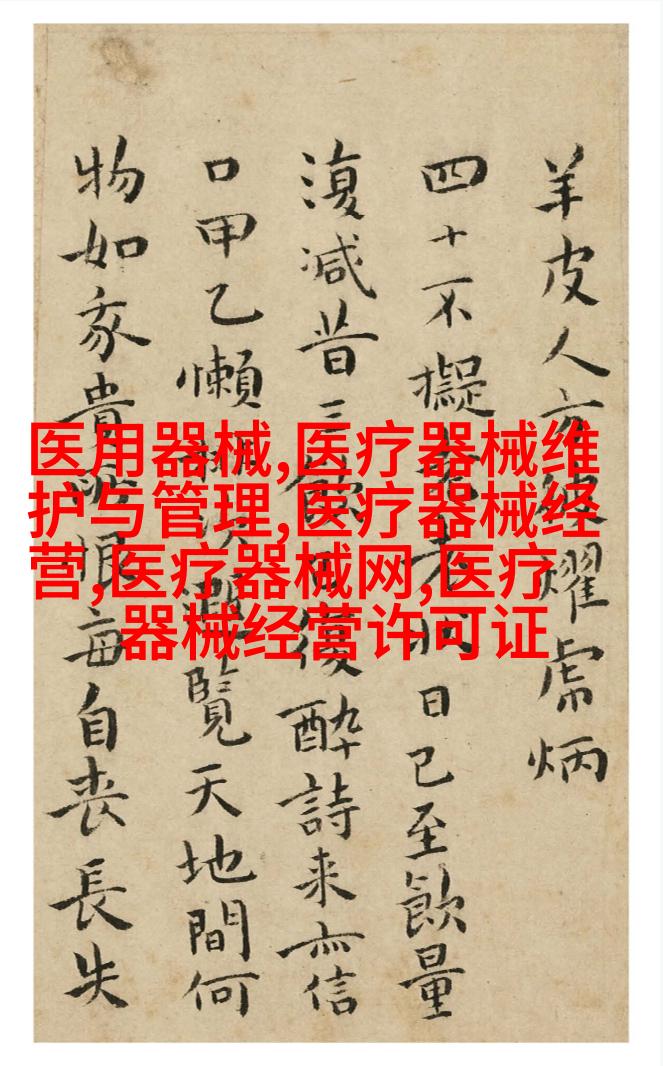 医用器械,医疗器械维
护与管理,医疗器械经
营,医疗器械网,医疗
器械经营许可证
羊皮人亦耀虎炳
四十不擬老日已至飲量
復減昔三飲復醉詩来亦信
口甲乙懶覽天地間何
物如豕貴恨每自喪長失